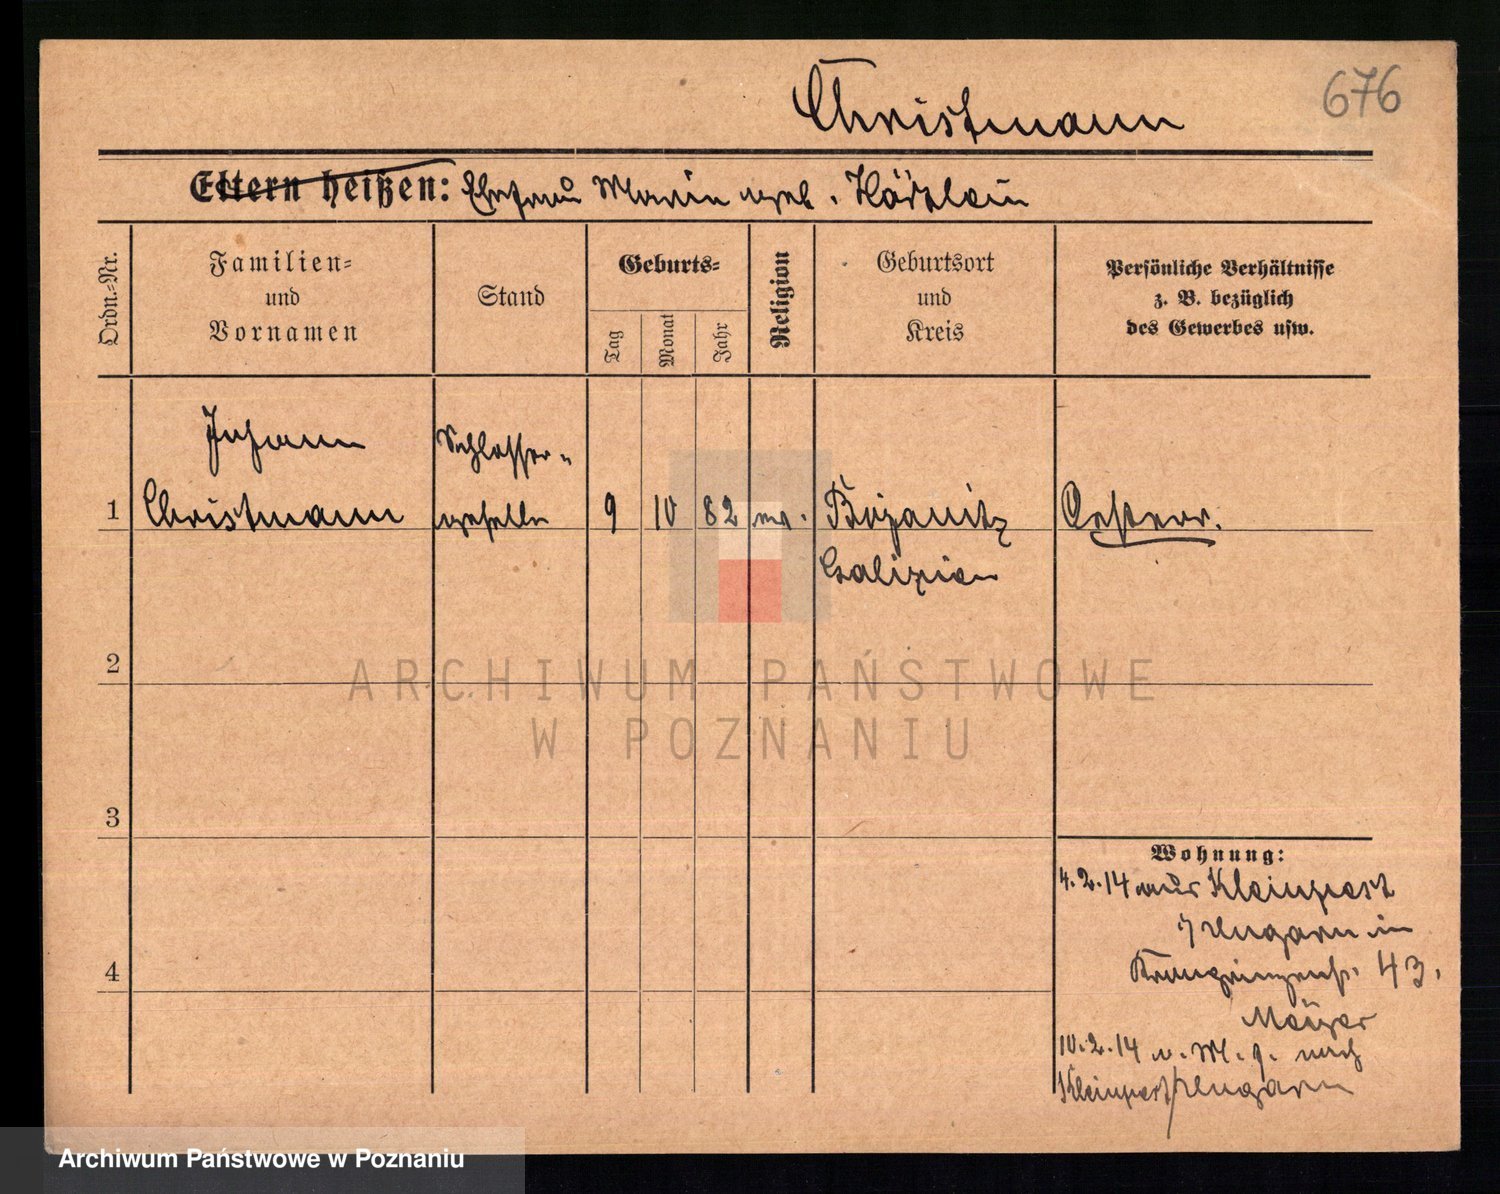 Christmann
676
Eltern heißen: Ehefrau Maria geb.
Ordn.-Nr.
Familien-
und
Vornamen
Stand
Geburts-
Tag
Monat
Jahr
Religion
Geburtsort
und
Kreis
Persönliche Verhältnisse
z. B. bezüglich
des Gewerbes usw.
1
Johann
Christmann
Schlosser-
geselle
9
10
82
Bojanitz
Galizien
Oesterr.
2
3
4
ARCHIWUM PAŃSTWOWE
W POZNANIU
Wohnung:
4.2.14 aus Kleinpest
Ungarn in
Kronprinzenstr. 43.
10.2.14 nach
Kleinpest/Ungarn
Archiwum Państwowe w Poznaniu